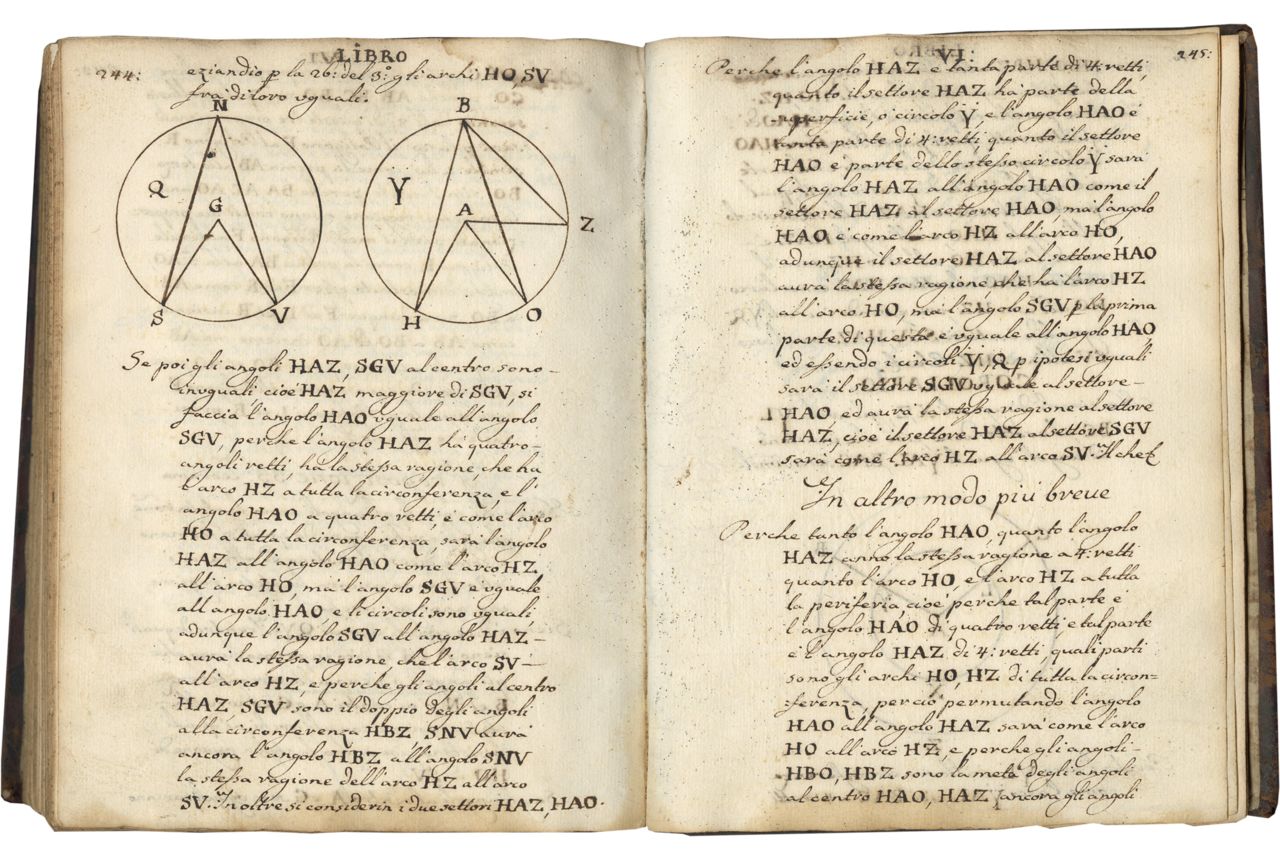 244:
LIBRO
eziandio p la 26: del 3.º gli archi HO, SV
fra di loro uguali.
N
Q
G
S
V
B
Y
A
Z
H
O
Se poi gli angoli HAZ, SGV al centro sono-
inuguali cioé HAZ maggiore di SGV, si
faccia l'angolo HAO uguale all'angolo
SGV, perche l'angolo HAZ há quatro-
angoli retti, ha la stessa ragione, che ha
l'arco HZ a tutta la circonferenza, e l'
angolo HAO a quatro retti é come l'arco
HO a tutta la circonferenza, sará l'angolo
HAZ all'angolo HAO come l'arco HZ
all'arco HO, ma l'angolo SGV é uguale
all'angolo HAO e li circoli sono uguali,
adunque l'angolo SGV all'angolo HAZ-
aurá la stessa ragione che l'arco SV-
all'arco HZ, e perche gli angoli al centro
HAZ, SGV sono il doppio degli angoli
alla circonferenza HBZ SNV aurá
ancora l'angolo HBZ all'angolo SNV
la stessa ragione dell'arco HZ all'arco
SV. In oltre si considerin i due settori HAZ, HAO.
VI:
245:
Perche l'angolo HAZ e tanta parte di 4: retti,
quanto il settore HAZ ha parte della
superficie, ó circolo Y, e l'angolo HAO é
tanta parte di 4: retti, quanto il settore
HAO é parte dello stesso circolo Y sará
l'angolo HAZ all'angolo HAO come il
settore HAZ al settore HAO, ma l'angolo
HAO é come l'arco HZ all'arco HO,
adunque il settore HAZ al settore HAO
aurá la stessa ragione che ha l'arco HZ
all'arco HO, ma l'angolo SGV p la prima
parte di questa é uguale all'angolo HAO
ed essendo i circoli Y, Q p ipotesi uguali
sará il settore SGV uguale al settore-
HAO ed aurá la stessa ragione al settore
HAZ, cioé il settore HAZ al settore SGV
sará come l'arco HZ all'arco SV. Il che
In altro modo piú breue
Perche tanto l'angolo HAO, quanto l'angolo
HAZ anno la stessa ragione a 4: retti
quanto l'arco HO, e l'arco HZ a tutta
la periferia cioé perche tal parte é
l'angolo HAO di quatro retti e tal parte
é l'angolo HAZ di 4: retti, quali parti
sono gli archi HO, HZ di tutta la circon=
ferenza, perció permutando l'angolo
HAO all'angolo HAZ sará come l'arco
HO all'arco HZ, e perche gli angoli-
HBO, HBZ sono la metá degli angoli
al centro HAO, HAZ ancora gli angoli